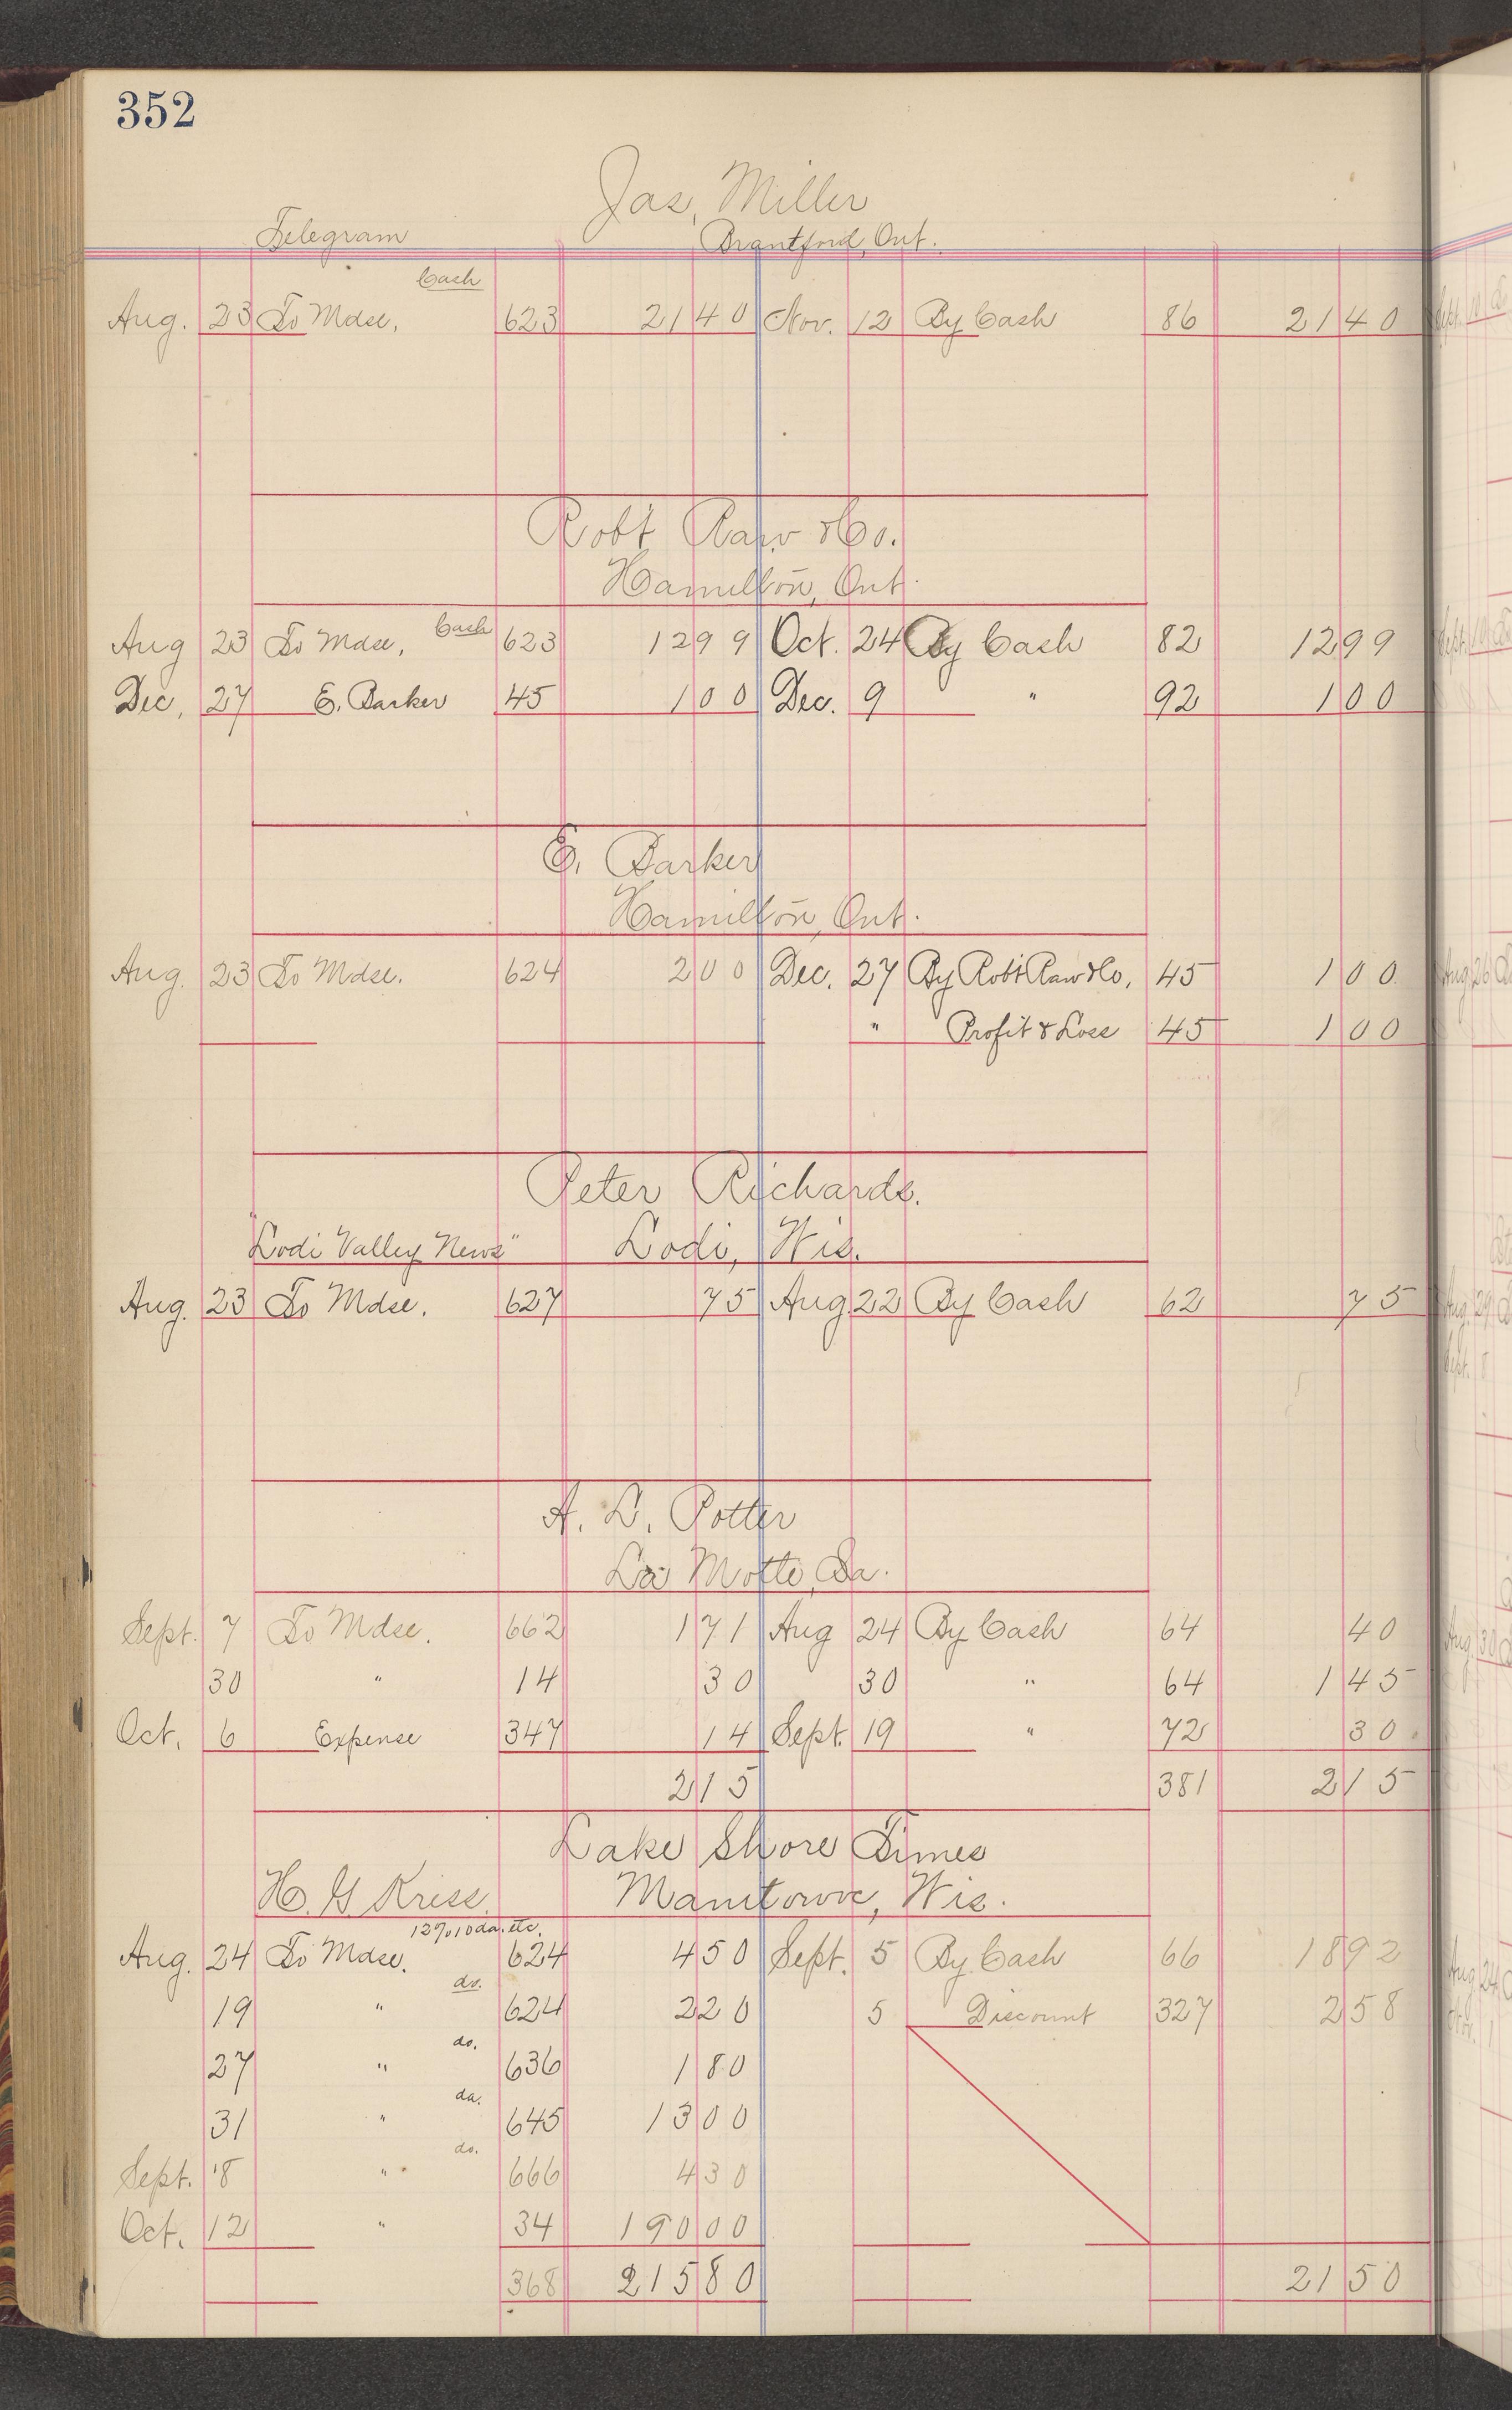 352
Jas. Miller
Telegram Brantford, Ont.
Cash
Aug. 23 To Mdse. 623 21 40 Nov. 12 By Cash 86 21 40
Robt Raw & Co.
Hamilton, Ont.
Aug 23 To Mdse, Cash 623 12 99 Oct. 24 By Cash 82 12 99
Dec. 27 E. Barker 45 1 00 Dec. 9 " 92 1 00
E. Barker
Hamilton, Ont.
Aug. 23 To Mdse. 624 2 00 Dec. 27 By Robt Raw & Co. 45 1 00
" Profit & Loss 45 1 00
Peter Richards.
"Lodi Valley News" Lodi, Wis.
Aug. 23 To Mdse. 627 75 Aug 22 By Cash 62 75
A. D. Potter
La Motte, Ia.
Sept. 7 To Mdse. 662 1 71 Aug 24 By Cash 64 40
30 " 14 30 30 " 64 1 45
Oct. 6 Expense 347 14 Sept. 19 " 72 30
2 15 381 2 15
Lake Shore Times
H. G Kress. Manitowoc, Wis.
12% 10 da. etc.
Aug. 24 To Mdse. 624 4 50 Sept. 5 By Cash 66 18 92
do.
19 " 624 2 20 5 Discount 327 2 58
do.
27 " 636 1 80
da.
31 " 645 13 00
do.
Sept. 8 " 666 4 30
Oct. 12 " 34 190 00
368 215 80 21 50